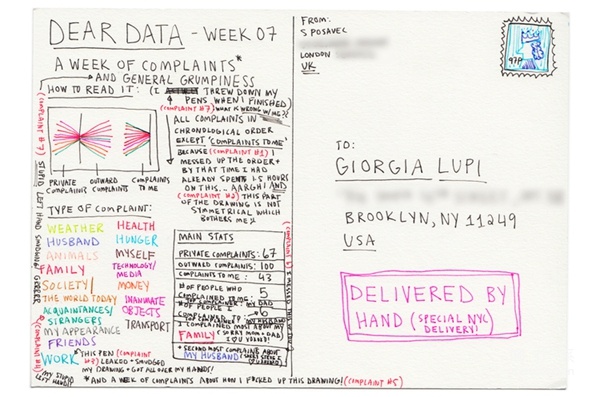 DEAR DATA - WEEK 07
A WEEK OF COMPLAINTS*
AND GENERAL GRUMPINESS
HOW TO READ IT:
(I THREW DOWN MY
PENS WHEN I FINISHED)
(COMPLAINT #7) WHAT IS WRONG W/ME?
ALL COMPLAINTS IN
CHRONOLOGICAL ORDER
EXCEPT 'COMPLAINTS TO ME'
BECAUSE (COMPLAINT #1) I
MESSED UP THE ORDER +
BY THAT TIME I HAD
ALREADY SPENT 1.5 HOURS
ON THIS... AARGH! AND
(COMPLAINT #2) THIS PART
OF THE DRAWING IS NOT
SYMMETRICAL WHICH
BOTHERS ME
PRIVATE COMPLAINTS
OUTWARD COMPLAINTS
COMPLAINTS TO ME
(COMPLAINT #7) STUPID LEFT HAND SMUDGING
TYPE OF COMPLAINT:
WEATHER
HUSBAND
ANIMALS
FAMILY
SOCIETY/
THE WORLD TODAY
ACQUAINTANCES/
STRANGERS
MY APPEARANCE
FRIENDS
WORK
HEALTH
HUNGER
MYSELF
TECHNOLOGY/
MEDIA
MONEY
INANIMATE
OBJECTS
TRANSPORT
MAIN STATS
PRIVATE COMPLAINTS: 67
OUTWARD COMPLAINTS: 100
COMPLAINTS TO ME: 43
# OF PEOPLE WHO
COMPLAINED TO ME: 5
MY DAD
# OF PEOPLE I
COMPLAINED TO: 6
MY HUSBAND
I COMPLAINED MOST ABOUT MY
FAMILY (SORRY MOM + DAD
I ♡ YOU REALLY)
* SECOND MOST COMPLAINT ABOUT
MY HUSBAND
*THIS PEN (COMPLAINT
#3) LEAKED + SMUDGED
MY DRAWING + GOT ALL OVER MY HANDS!
(COMPLAINT #4)
MY STUPID
LEFT HAND!!
*AND A WEEK OF COMPLAINTS ABOUT HOW I F*CKED UP THIS DRAWING! (COMPLAINT #5)
FROM:
S POSAVEC
LONDON
UK
97P
TO:
GIORGIA LUPI
BROOKLYN, NY 11249
USA
DELIVERED BY
HAND (SPECIAL NYC
DELIVERY!)